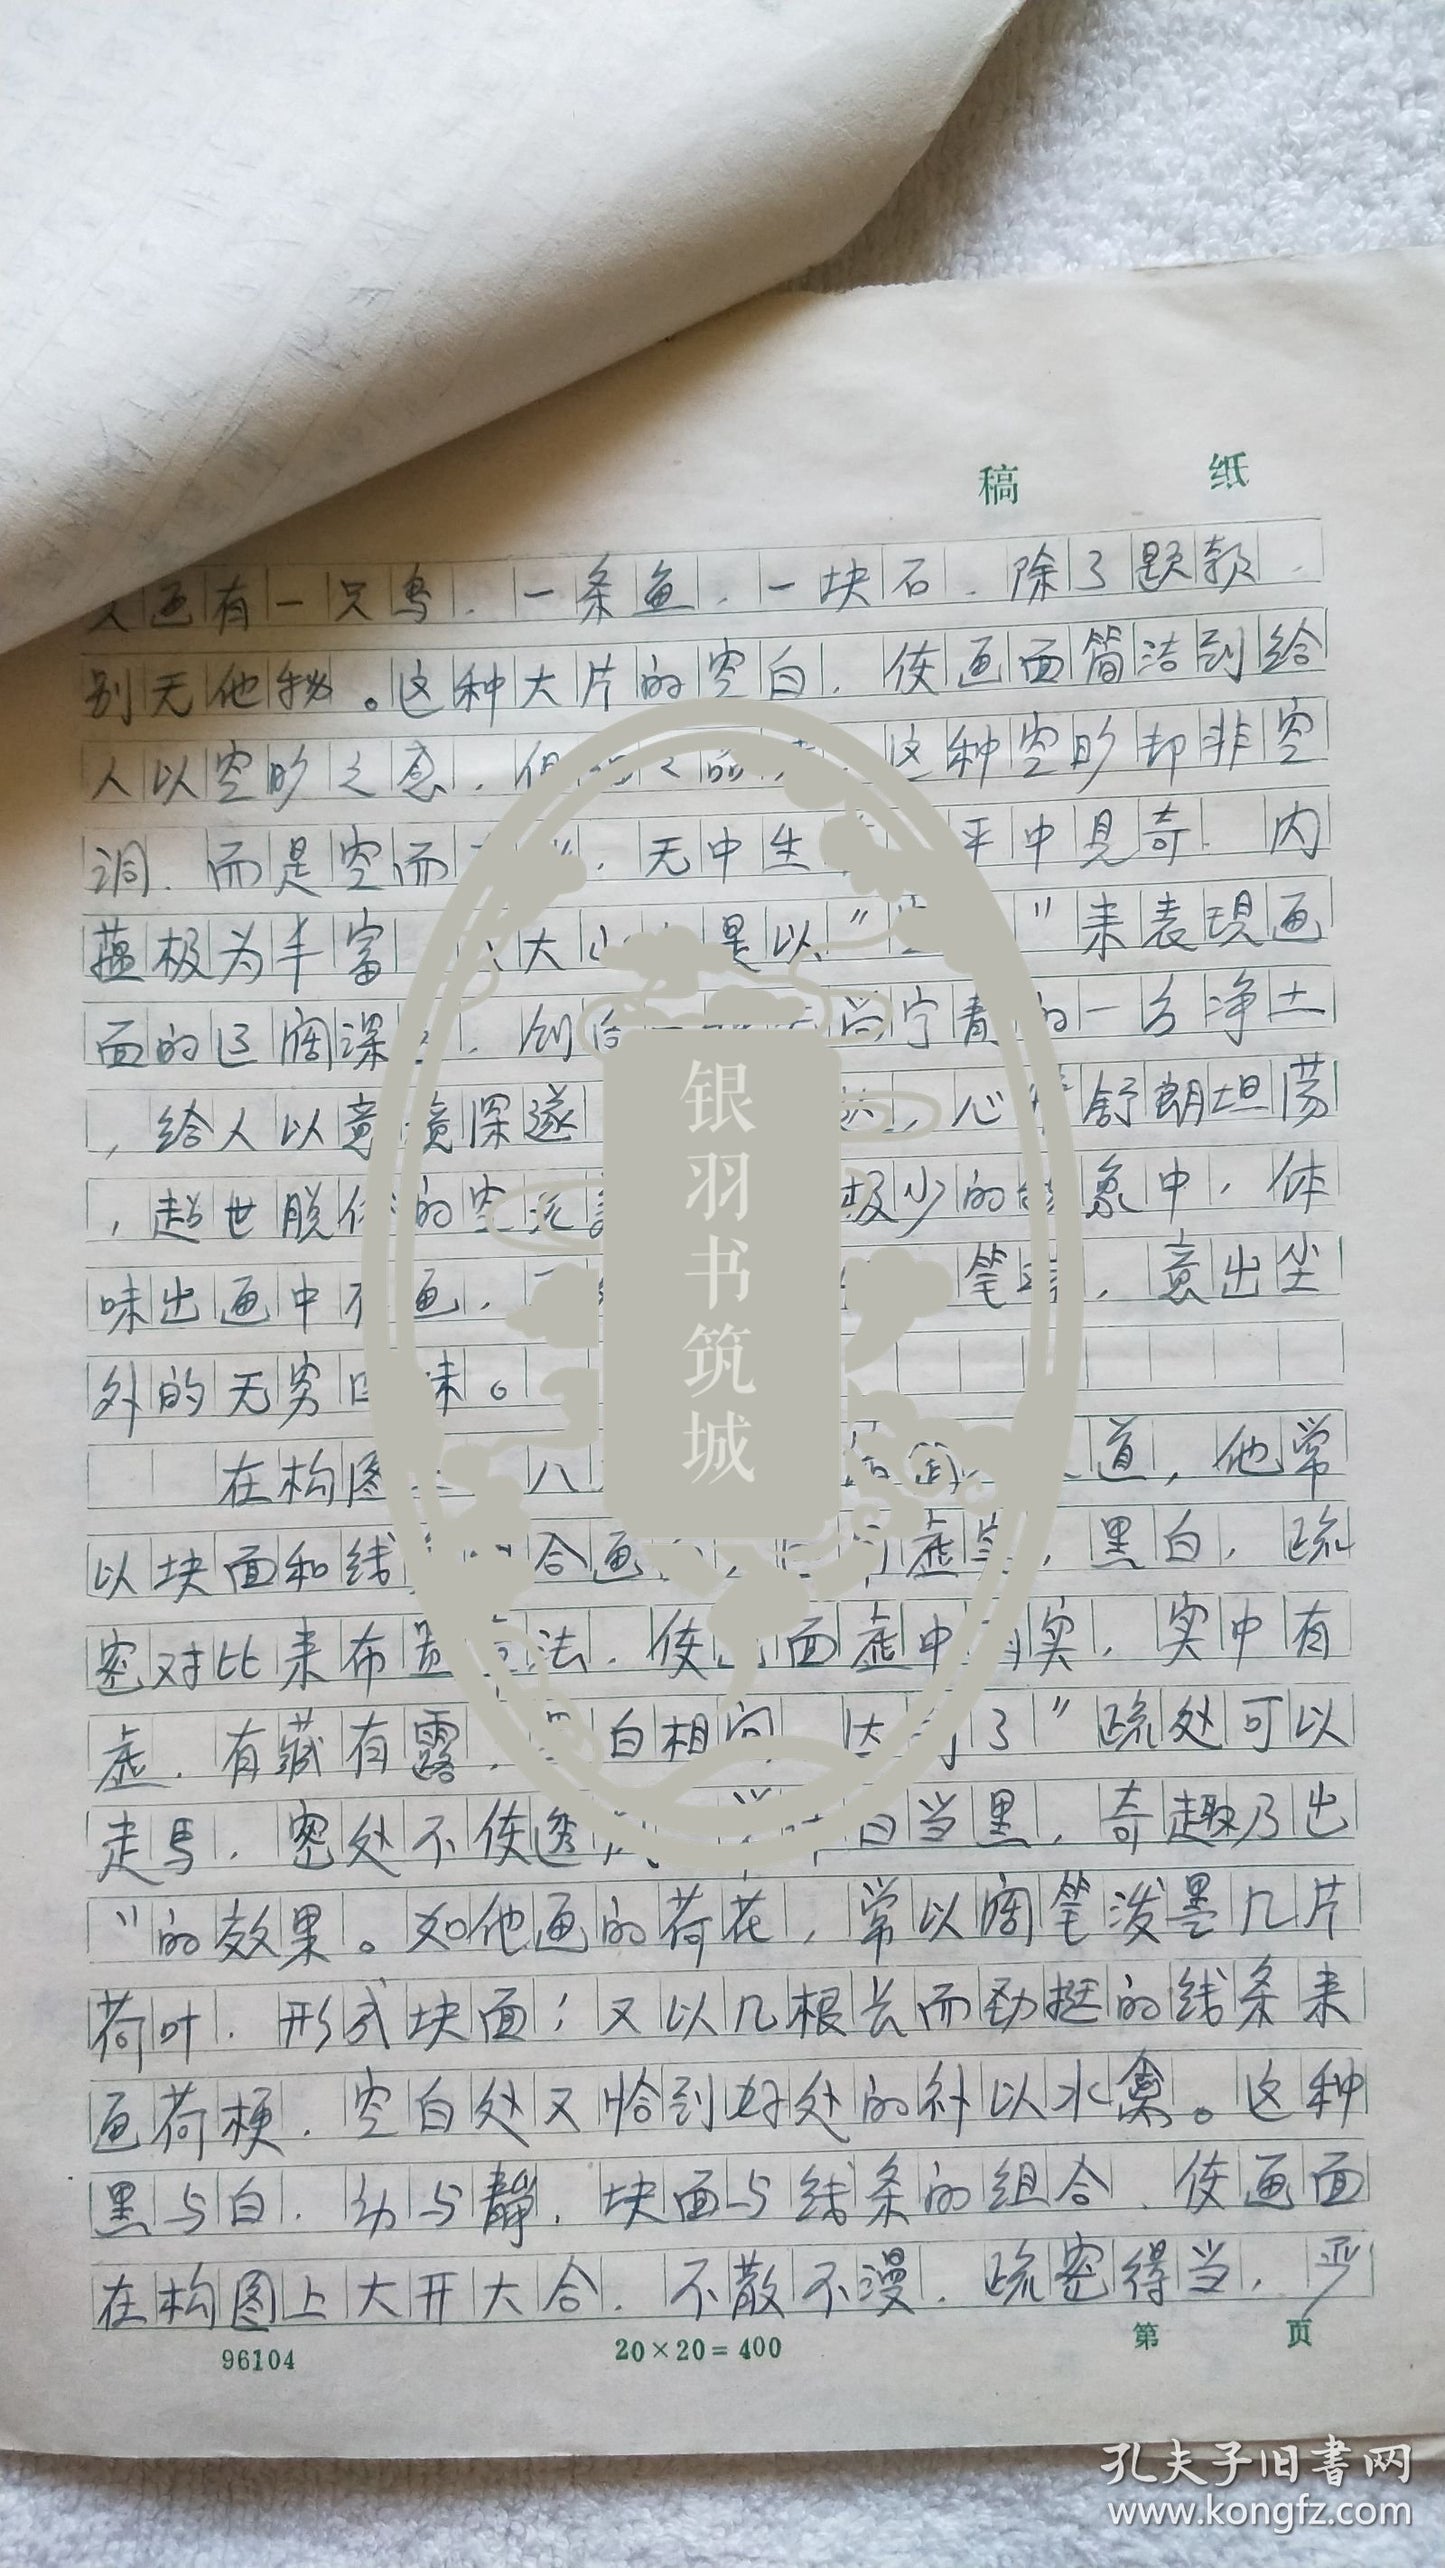 稿 纸
画有一只鸟，一条鱼，一块石，除了题款，
别无他物。这种大片的空白，使画面简洁到给
人以空旷之感，但 这种空旷却非空
洞，而是空而 ，无中生 平中见奇，内
蕴极为丰富 大 是以" "来表现画
面的辽阔深 ， 宁静的一方净土
，给人以意境深邃 ，心 舒朗坦荡
，超世脱俗的空 极少的 象中，体
味出画中不画， 笔 ，意出尘
外的无穷回味。
在构图 八 道，他常
以块面和线 合画 虚实，黑白，疏
密对比来布置章法，使画面虚中有实，实中有
虚，有藏有露， 白相间，达到了"疏处可以
走马，密处不使透风， 白当黑，奇趣乃出
"的效果。如他画的荷花，常以阔笔泼墨几片
荷叶，形式块面；又以几根长而劲挺的线条来
画荷梗，空白处又恰到好处的补以水禽。这种
黑与白，动与静，块面与线条的组合，使画面
在构图上大开大合，不散不漫，疏密得当，严
96104 20×20=400 第 页
银羽书筑城
孔夫子旧书网
www.kongfz.com